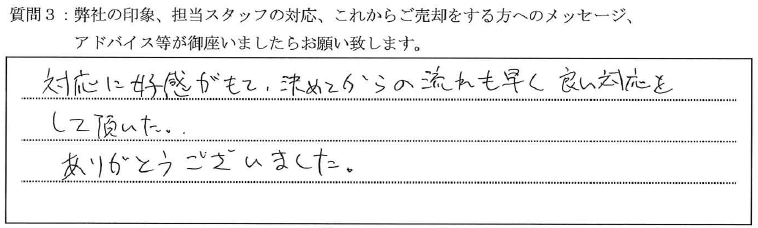 質問３：弊社の印象、担当スタッフの対応、これからご売却をする方へのメッセージ、
アドバイス等が御座いましたらお願い致します。
対応に好感がもて、決めてからの流れも早く良い対応を
して頂いた。
ありがとうございました。